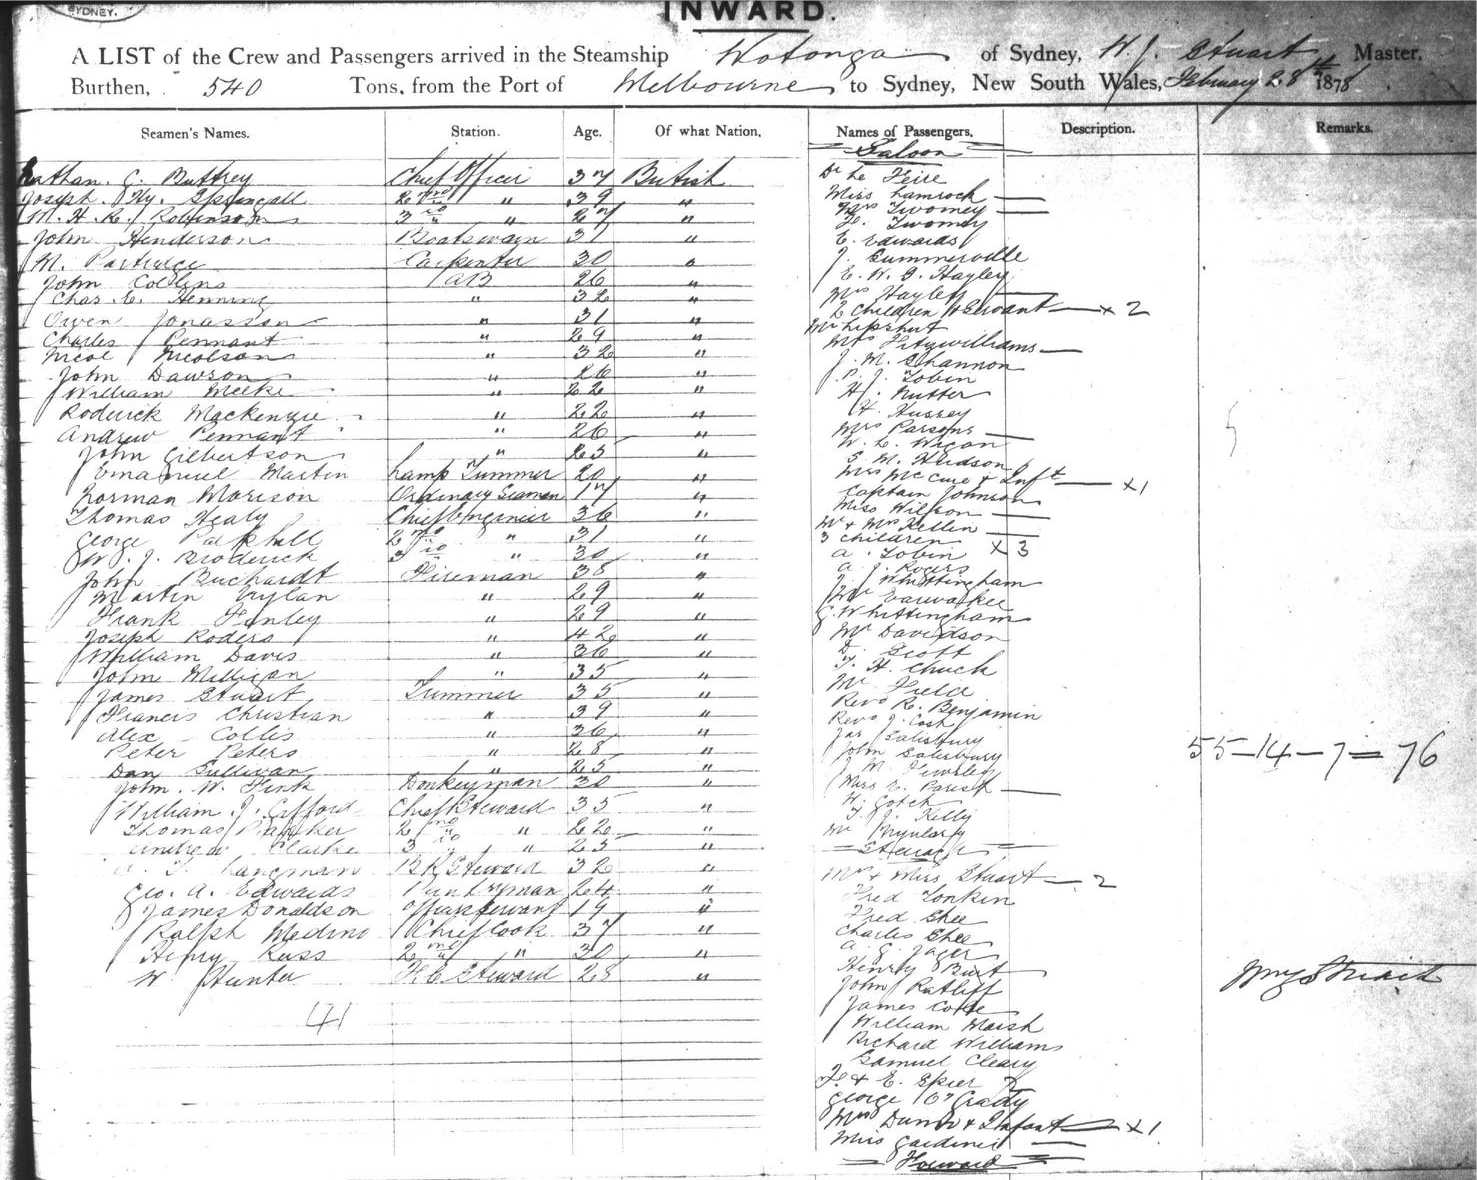 SYDNEY.
INWARD.
A LIST of the Crew and Passengers arrived in the Steamship Wotonga of Sydney, W. J. Stuart Master,
Burthen, 540 Tons, from the Port of Melbourne to Sydney, New South Wales, February 28th 1878.
Seamen's Names. Station. Age. Of what Nation. Names of Passengers. Description. Remarks.
Saloon
Nathan. G. Buttrey Chief Officer 37 British
Joseph. Hy. Springall 2nd " 39 "
M. H. R. Robinson 3rd " 27 "
John Henderson Boatswain 37 "
M. Partridge Carpenter 30 "
John Collins AB 26 "
Chas. C. Henning " 32 "
Owen Jonasson " 31 "
Charles Pennant " 29 "
Nicol Nicolson " 32 "
John Dawson " 26 "
William Meeke " 22 "
Roderick Mackenzie " 22 "
Andrew Pennant " 26 "
John Gilbertson " 23 "
Emanuel Martin Lamp Trimmer 20 "
Norman Morison Ordinary Seaman 17 "
Thomas Healy Chief Engineer 36 "
George Parkhill 2nd " 31 "
W. J. Broderick 3rd " 30 "
John Buchardt Fireman 38 "
Martin Nylan " 29 "
Frank Finley " 29 "
Joseph Roders " 42 "
William Davis " 36 "
John Milligan " 35 "
James Stuart Trimmer 35 "
Francis Christian " 39 "
Alex Collis " 36 "
Peter Peters " 28 "
Dan Sullivan " 25 "
John. W. Fink Donkeyman 30 "
William. J. Gifford Chief Steward 35 "
Thomas Parker 2nd " 22 "
Andrew Clarke 3 " 25 "
Langman BK Steward 32 "
Geo. A. Edwards Pantryman 24 "
James Donaldson Officers Servant 19 "
Ralph Medino Chief Cook 37 "
Henry Russ 2nd " 30 "
W Hunter F. C. Steward 28 "
41
Dr Le Feire
Miss Lamrock
Mrs Twomey
D. Twomey
E. Edwards
J. Summerville
E. W. G. Hayley
Mrs Hayley
2 children & Servant x 2
Mr Lipshut
Mrs Fitzwilliams
J. M. Shannon
P. J. Tobin
H. Nutter
H. Hussey
Mrs Parsons
W. L. Wigan
S. M. Hudson
Mrs McCure & Inft x1
Captain Johnson
Miss Wilson
Mr & Mrs Kellin
3 children x 3
A. Tobin
A. J. Rogers
J. Whittingham
Mr Earwaker
G. Whittingham
Mr Davidson
D. Scott
T. H. Chuck
Mr Field
Revd R. Benjamin
Revd J. Cosh
Jas Salisbury
John Salisbury
J. M. Tewsley
Miss C. Parish
W. Gotch
T. J. Kelly
Mr
55 - 14 - 7 = 76
Steerage
Mrs & Miss Stuart 2
Fred Tonkin
Fred Shee
Charles Shee
A. G. Jager
Henry Burt
John Ratliff
James Coote
William Marsh
Richard Williams
Samuel Cleary
F. & E. Spier
George O'Grady
Mrs Dunn & Infant x 1
Miss Gardiner
Forward
Wm J Stuart